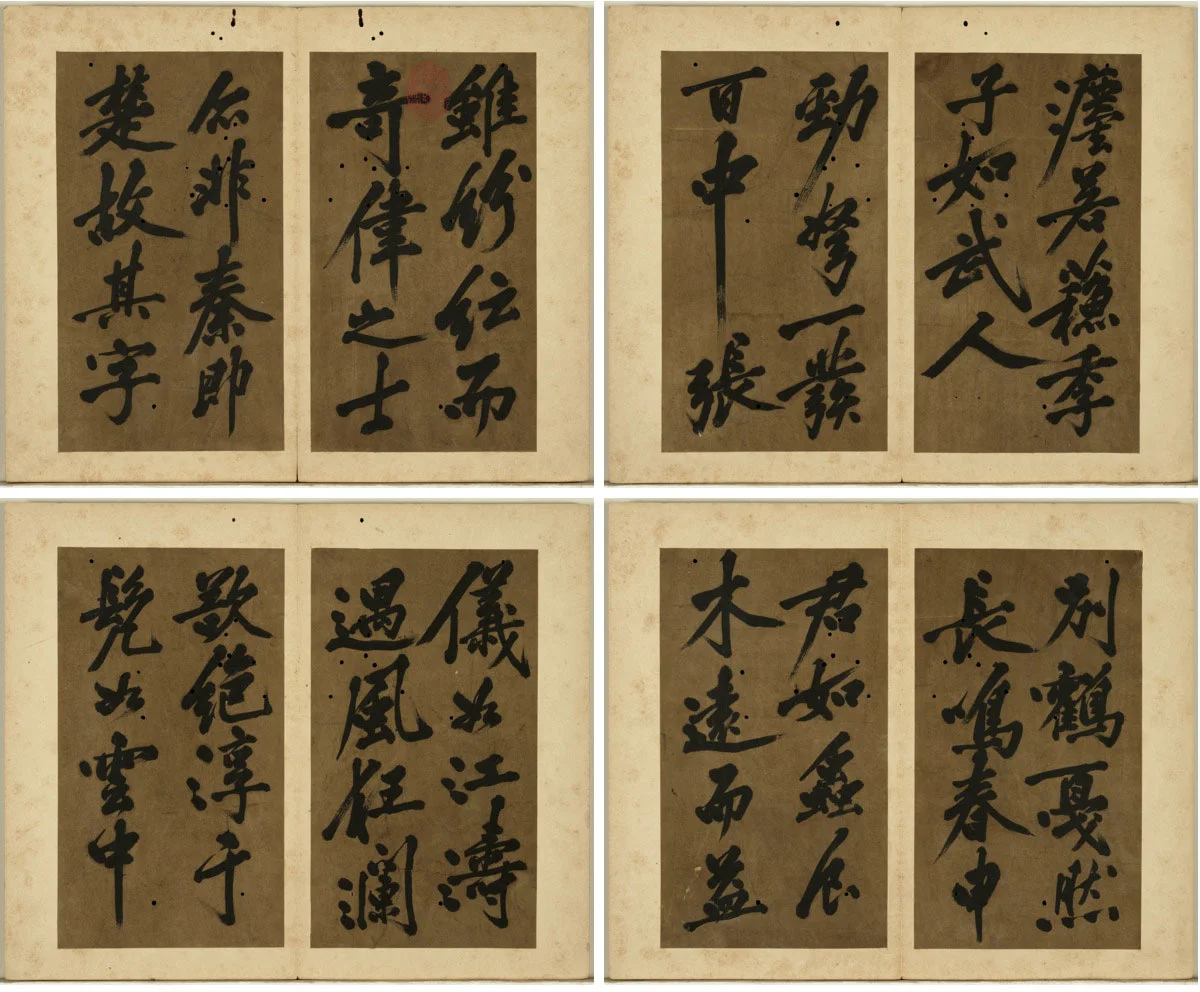 雖紛紜而
奇偉之士
尒非秦即
楚故其字
若蘓季
子如武人
勁弩一發
百中張
儀如江濤
遇風狂瀾
歘絕淳于
髡如雲中
別鶴戛然
長鳴春申
君如蠡
木遠而益